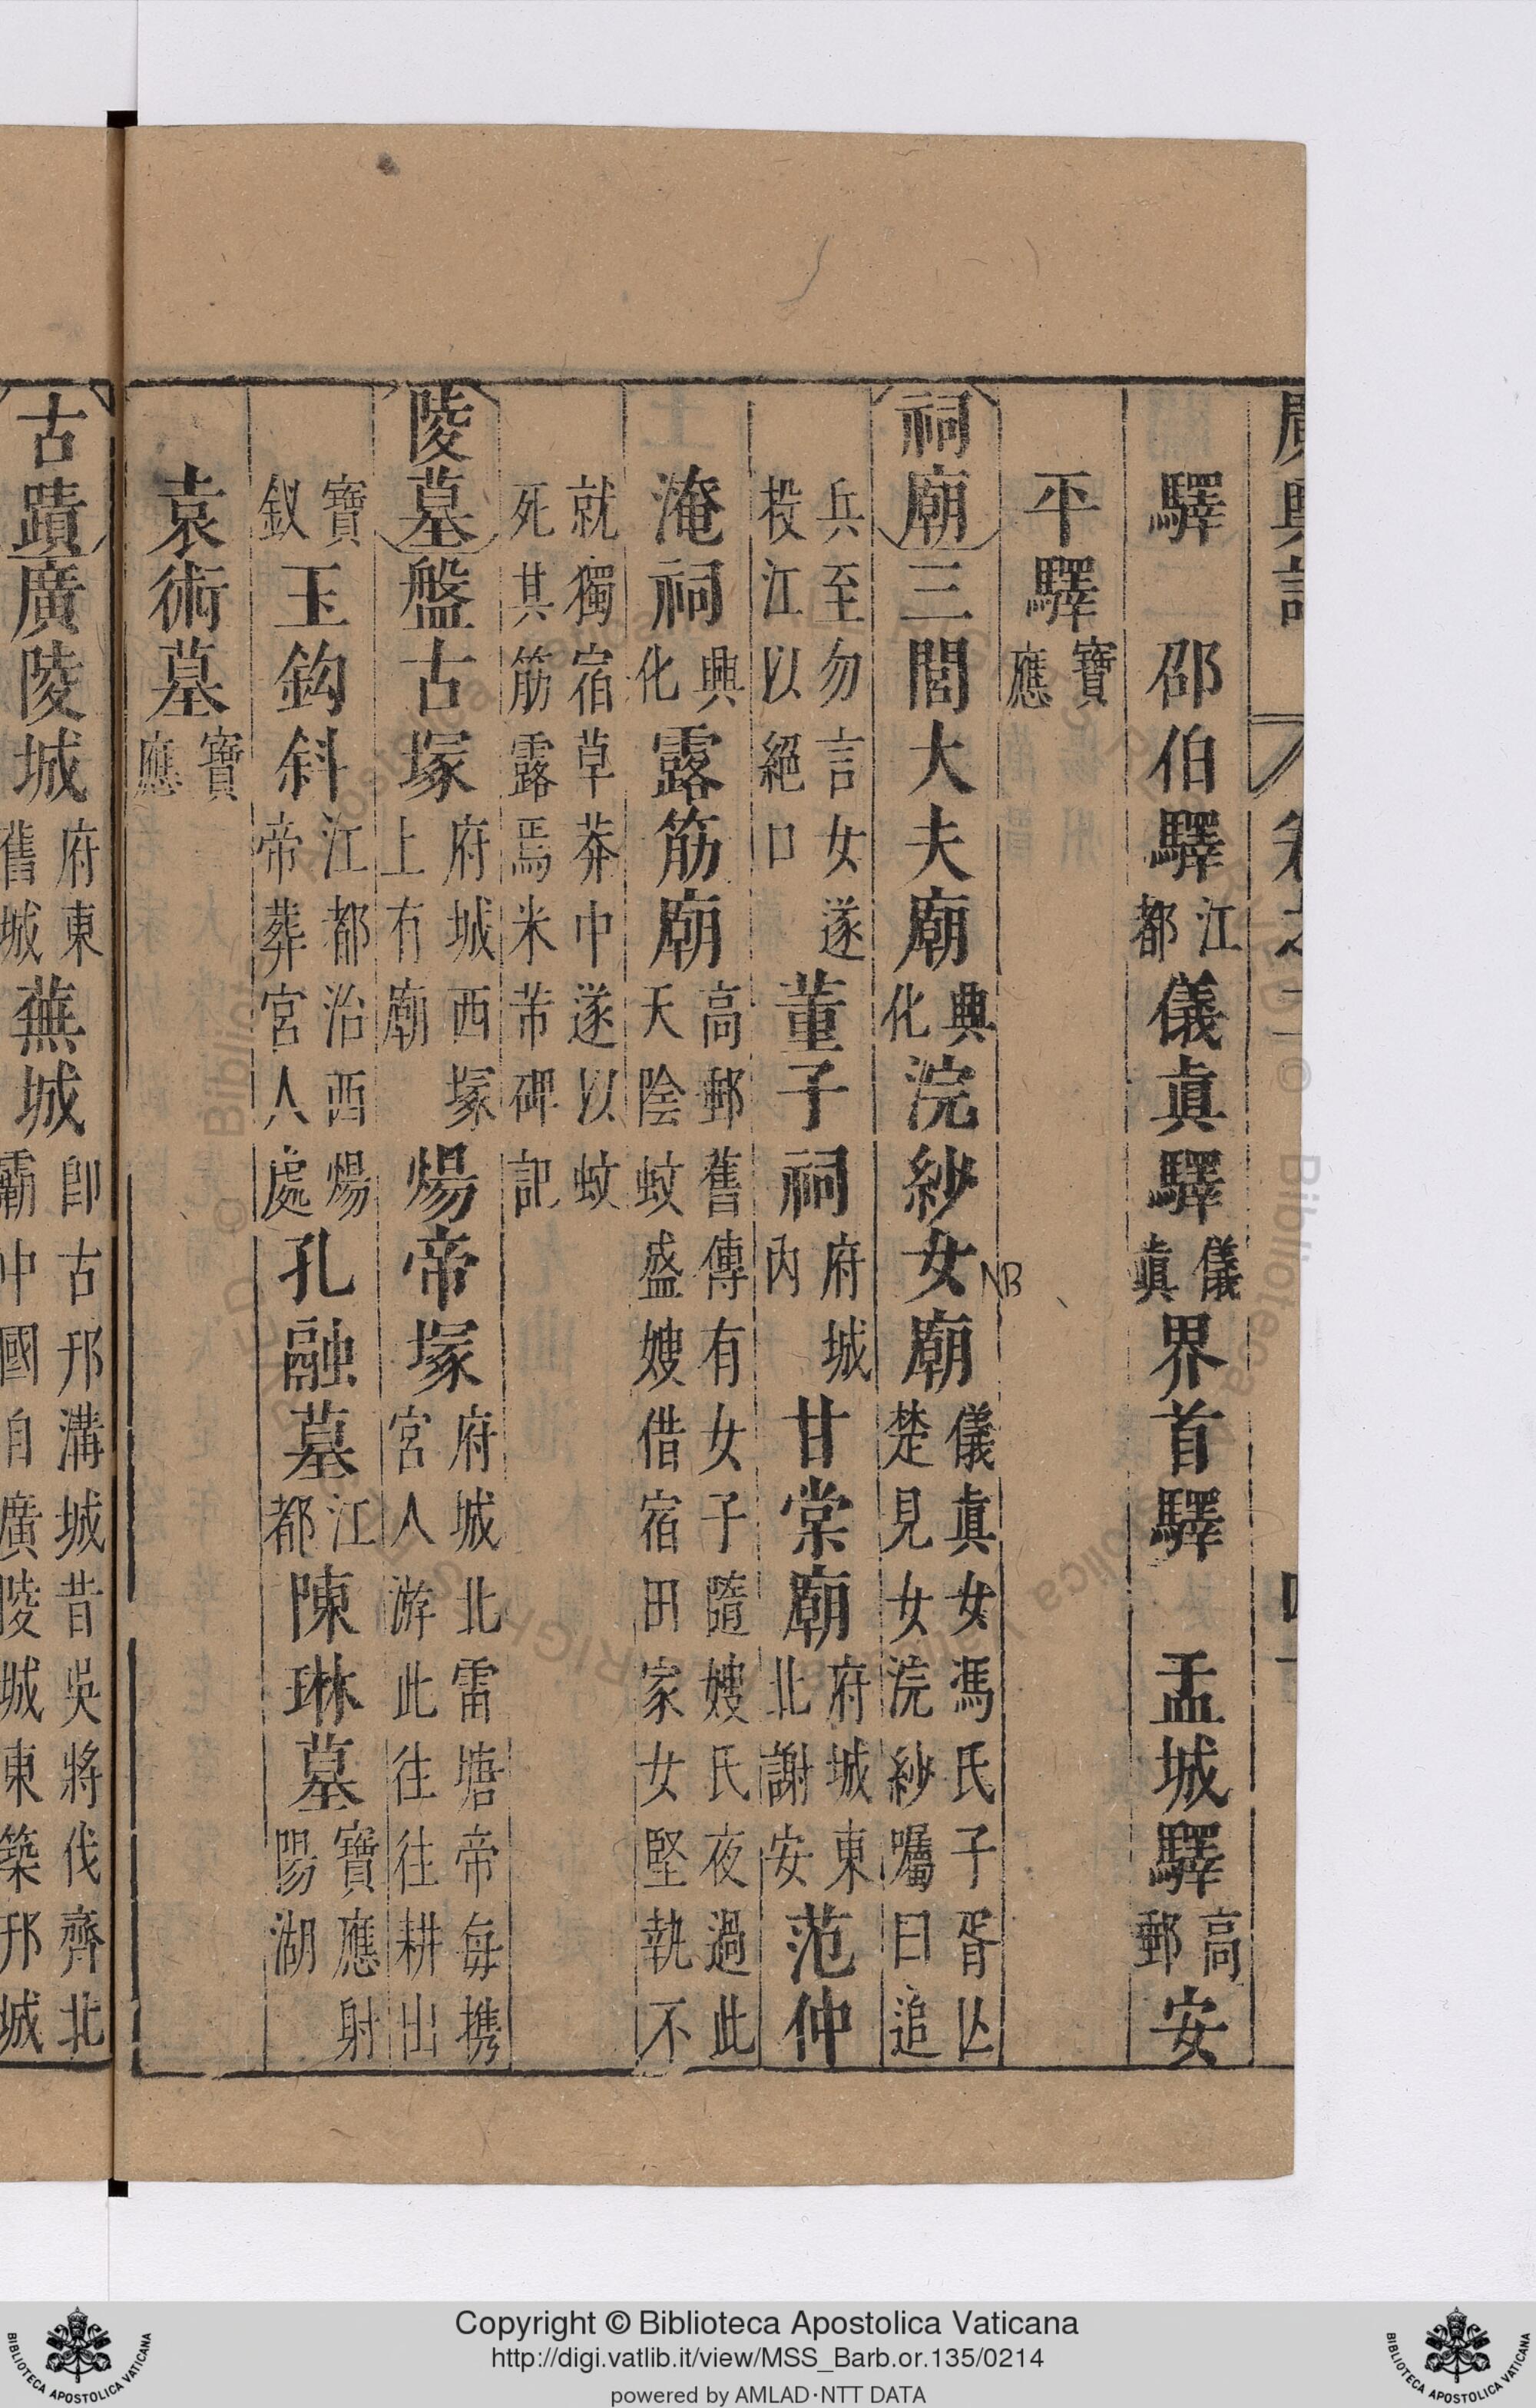 廣輿記 卷之二
驛 邵伯驛江都儀眞驛儀眞界首驛 孟城驛高郵安
平驛寶應
祠廟三閭大夫廟興化浣紗女廟儀眞女馮氏子胥亾楚見女浣紗囑曰追
兵至勿言女遂投江以絕口董子祠府城內甘棠廟府城東北謝安范仲
淹祠興化露筋廟高郵舊傳有女子隨嫂氏夜過此天陰蚊盛嫂借宿田家女堅執不
就獨宿草莽中遂以蚊死其筋露焉米芾碑記
陵墓盤古塚府城西塚上有廟煬帝塚府城北雷塘帝每携宮人游此往往耕出
寶釵玉鈎斜江都治西煬帝葬宮人處孔融墓江都陳琳墓寶應射陽湖
袁術墓寶應
古蹟廣陵城府東舊城蕪城卽古邗溝城昔吳將伐齊北霸中國自廣陵城東築邗城
NB
Copyright © Biblioteca Apostolica Vaticana
http://digi.vatlib.it/view/MSS_Barb.or.135/0214
powered by AMLAD·NTT DATA
BIBLIOTECA APOSTOLICA VATICANA
BIBLIOTECA APOSTOLICA VATICANA